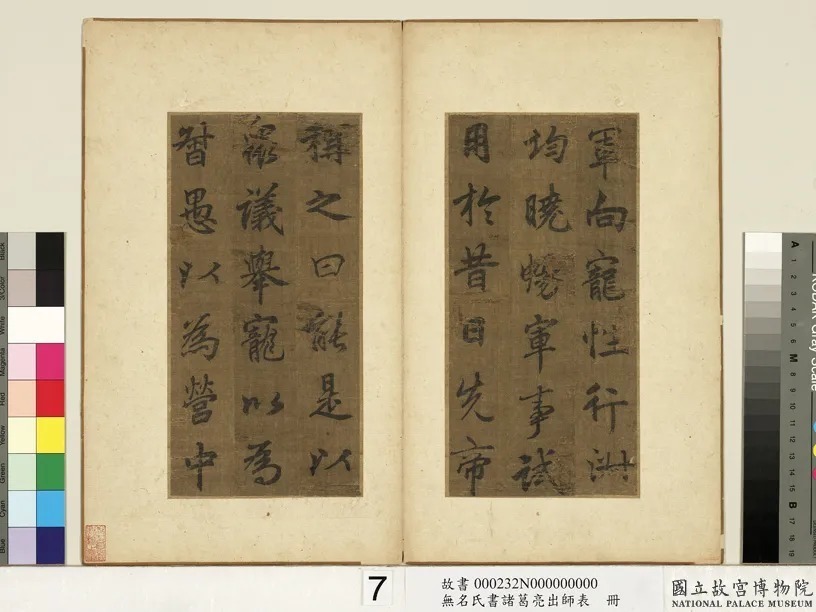 軍向寵性行淑
均曉暢軍事試
用於昔日先帝
稱之曰能是以
眾議舉寵以為
督愚以為營中
Black
3/Color
White
Magenta
Red
Yellow
Green
Cyan
Blue
A 1 2 3 4 5 6 M 8 9 10 11 12 13 14 15 B 17 18 19
7
故書 000232N000000000
無名氏書諸葛亮出師表 冊
國立故宮博物院
NATIONAL PALACE MUSEUM